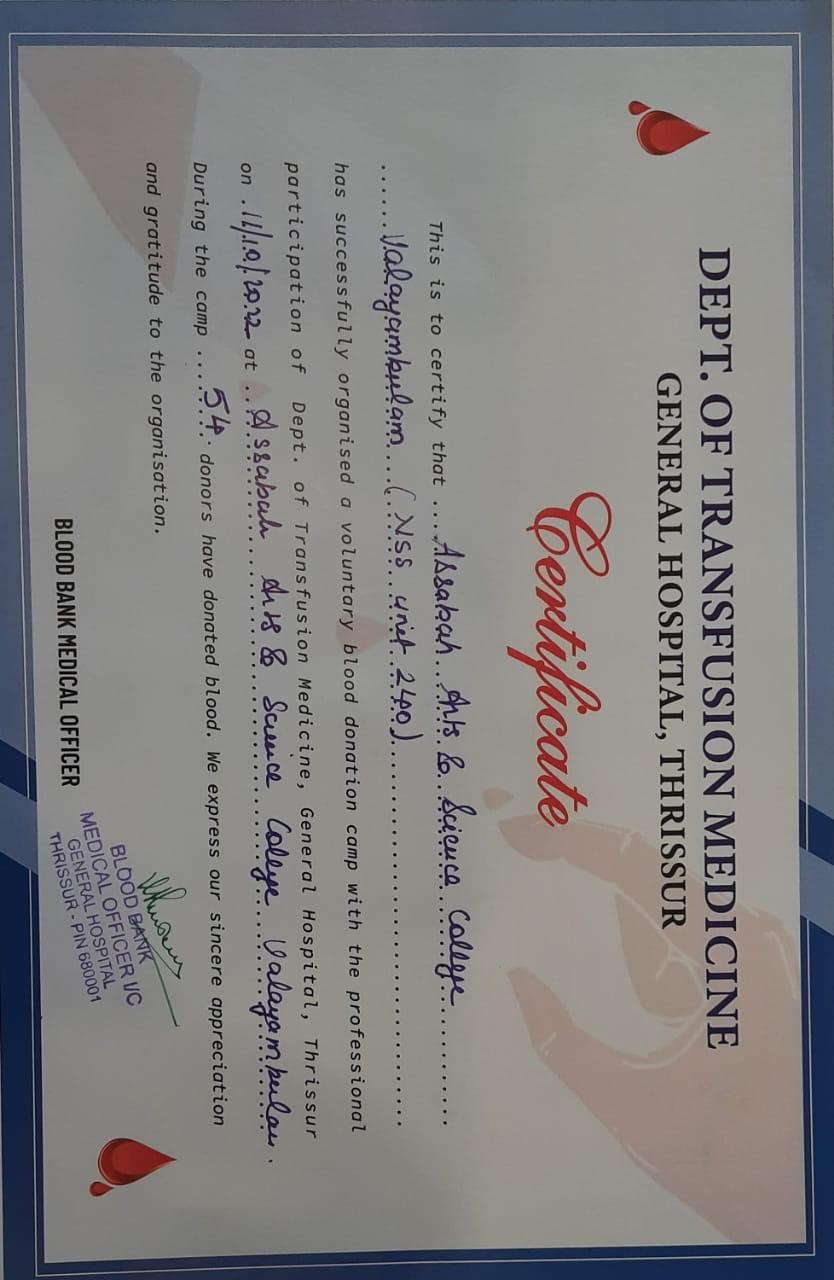 DEPT. OF TRANSFUSION MEDICINE
GENERAL HOSPITAL, THRISSUR
Certificate
This is to certify that ....Assabah Arts & Science College............
......Valayambulam...(NSS unit 240)..........................................
has successfully organised a voluntary blood donation camp with the professional
participation of Dept. of Transfusion Medicine, General Hospital, Thrissur
on .11/10/2022 at ..Assabah Arts & Science College Valayambulam.
During the camp ....54.... donors have donated blood. We express our sincere appreciation
and gratitude to the organisation.
BLOOD BANK MEDICAL OFFICER
BLOOD BANK
MEDICAL OFFICER I/C
GENERAL HOSPITAL
THRISSUR - PIN 680001